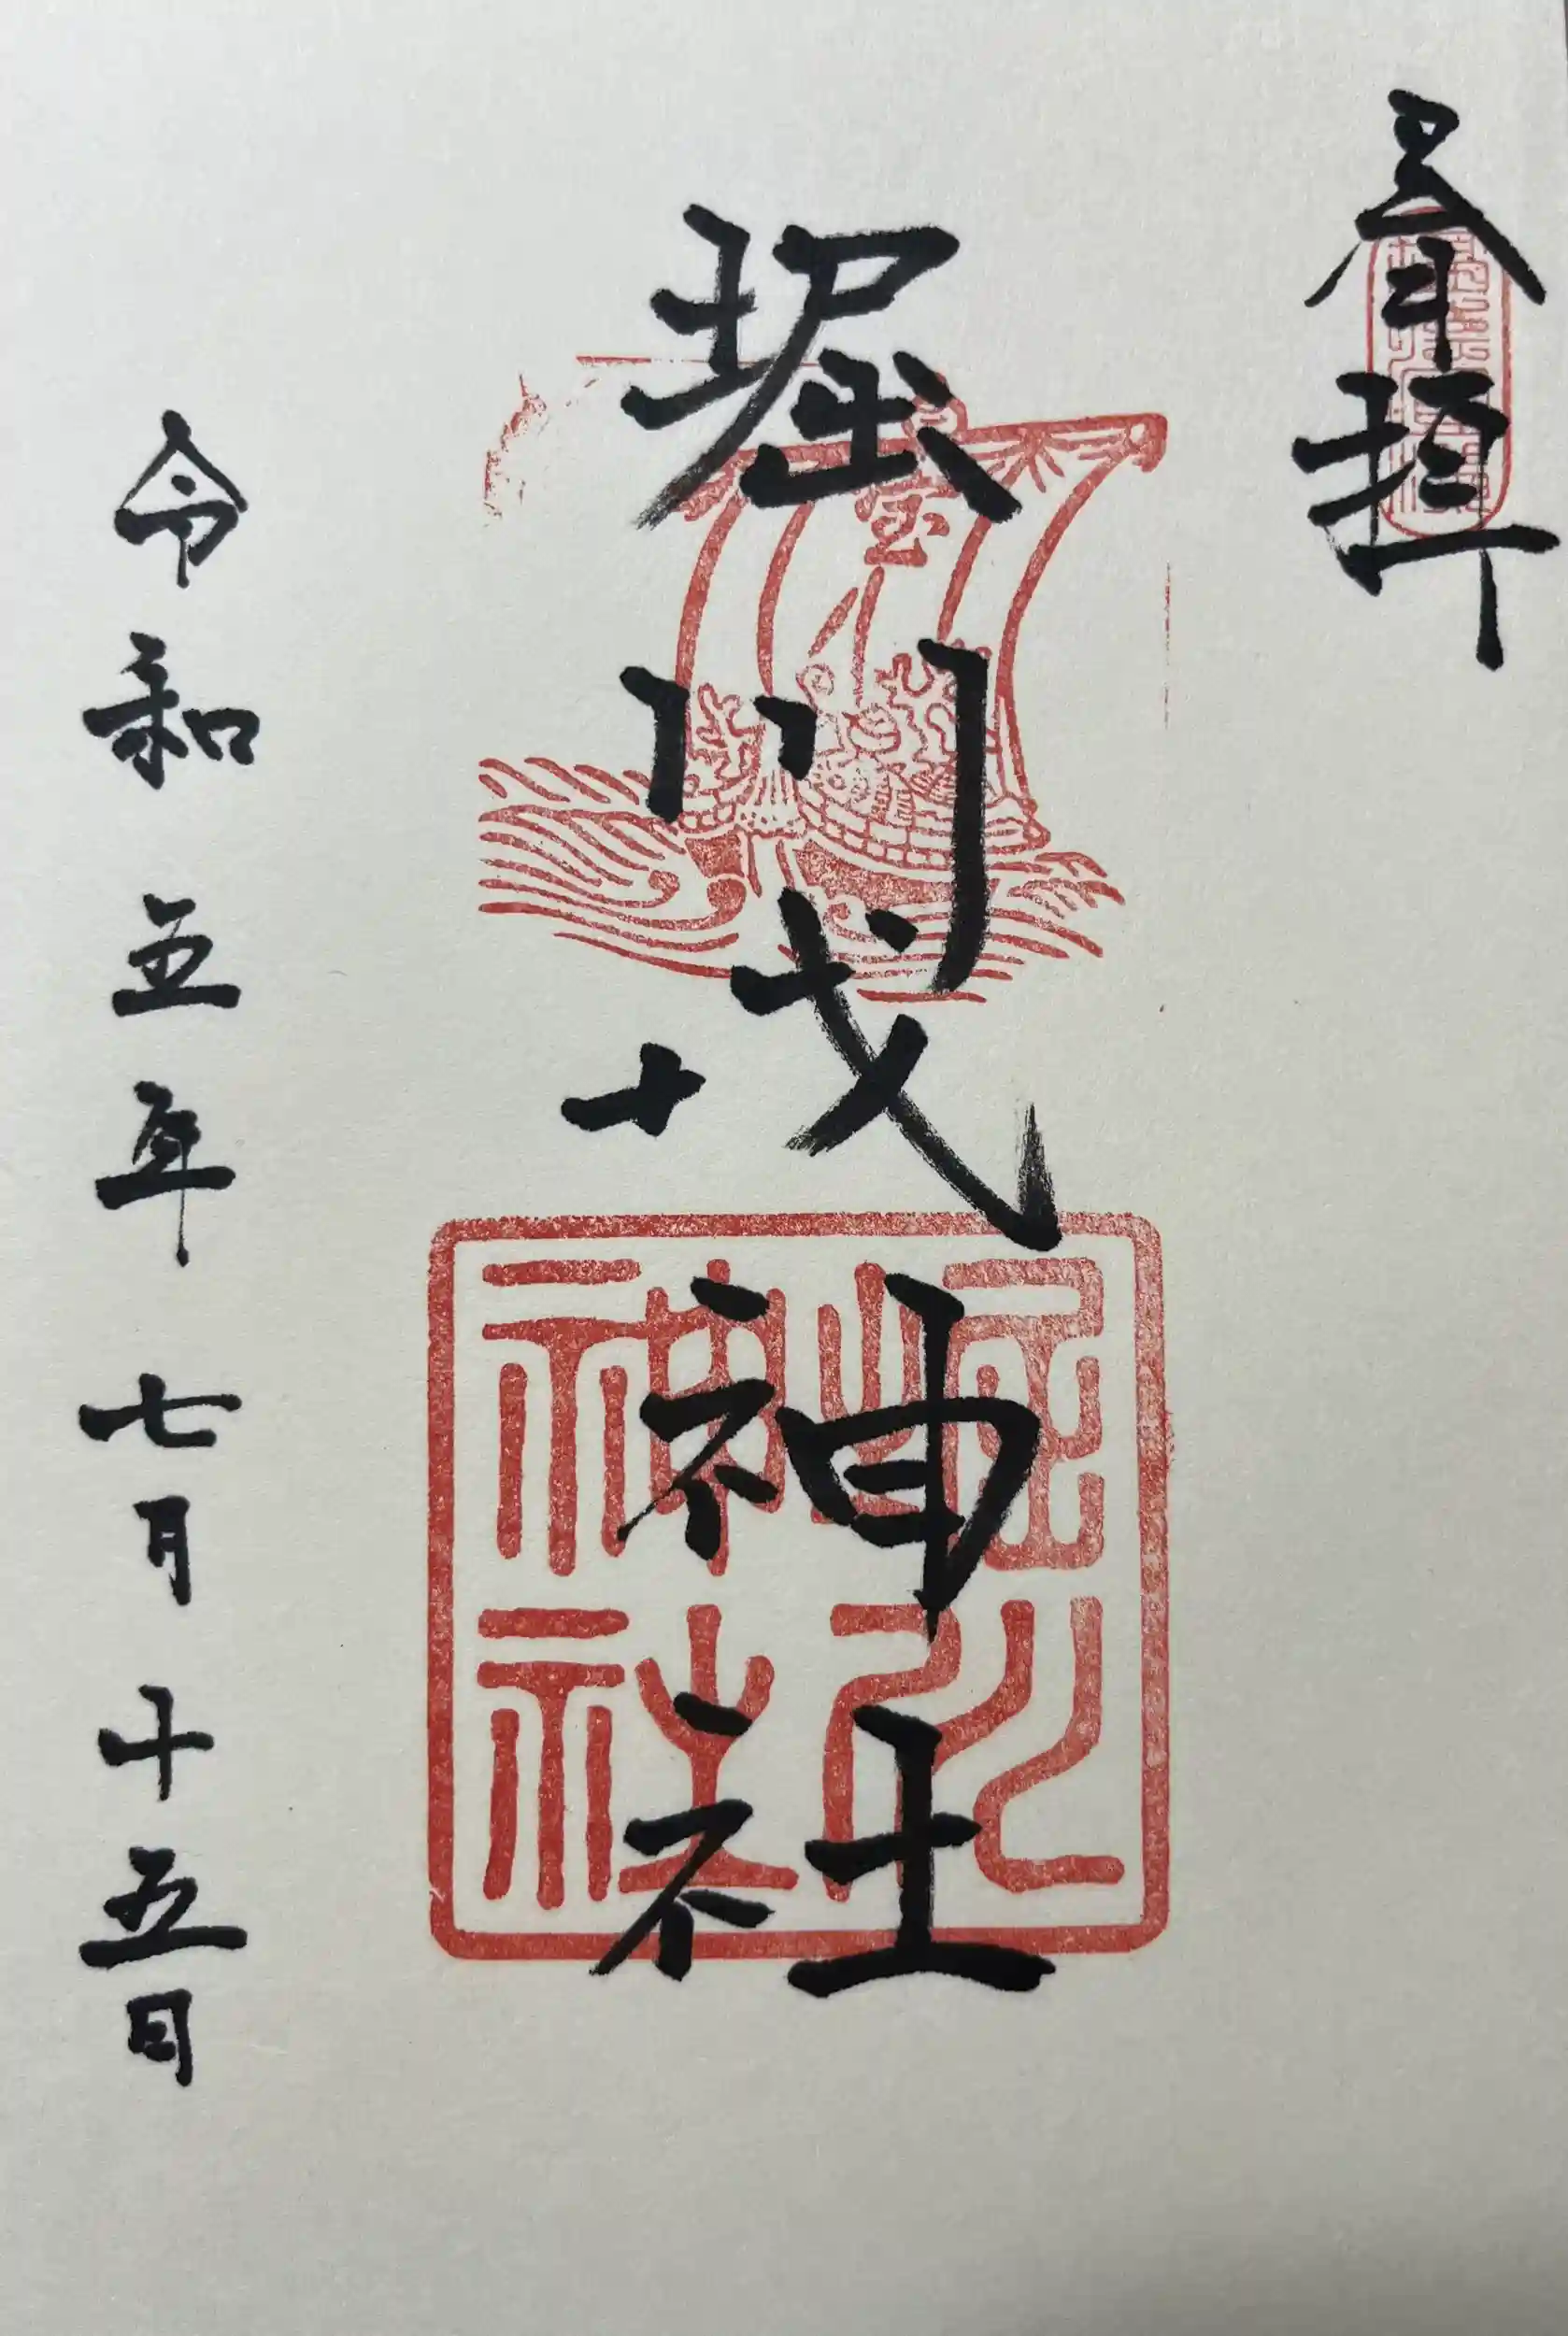 奉拝
堀川戎神社
宝
堀川
神社
令和五年七月十五日